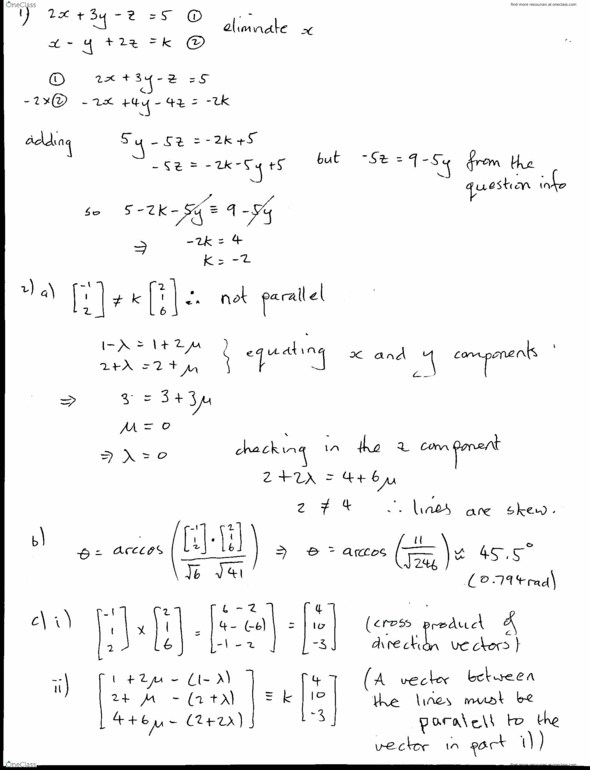 OneClass
find more resources at oneclass.com
1) 2x + 3y - z = 5 ①
x - y + 2z = k ② eliminate x
① 2x + 3y - z = 5
-2×② -2x + 4y - 4z = -2k
adding 5y - 5z = -2k + 5
-5z = -2k - 5y + 5 but -5z = 9 - 5y from the
question info
so 5 - 2k - 5y ≡ 9 - 5y
⇒ -2k = 4
k = -2
2) a) [-1 1 2] ≠ k [2 1 6] ∴ not parallel
1 - λ = 1 + 2μ
2 + λ = 2 + μ } equating x and y components
⇒ 3 = 3 + 3μ
μ = 0
⇒ λ = 0 checking in the z component
2 + 2λ = 4 + 6μ
2 ≠ 4 ∴ lines are skew.
b) θ = arccos ([-1 1 2] · [2 1 6] / √6 √41) ⇒ θ = arccos (11/√246) ≈ 45.5°
(0.794 rad)
c) i) [-1 1 2] × [2 1 6] = [6 - 2 4 - (-6) -1 - 2] = [4 10 -3] (cross product of
direction vectors)
ii) [1 + 2μ - (1 - λ) 2 + μ - (2 + λ) 4 + 6μ - (2 + 2λ)] ≡ k [4 10 -3] (A vector between
the lines must be
paralell to the
vector in part i))
OneClass
find more resources at oneclass.com